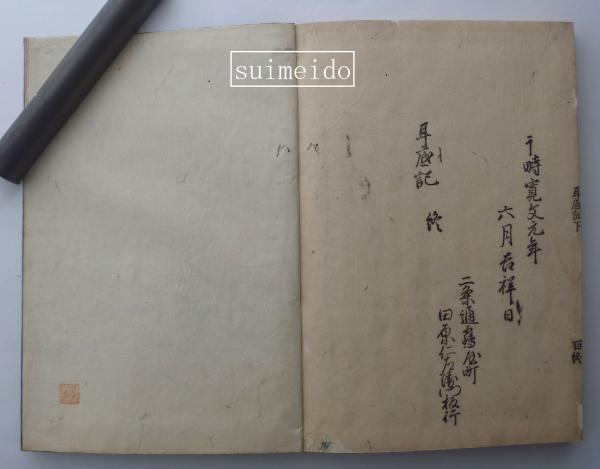 suimeido
耳底記下
百終
于時寛文元年
六月吉祥日
耳底記 終
二条通鶴屋町
田原仁左衛門板行